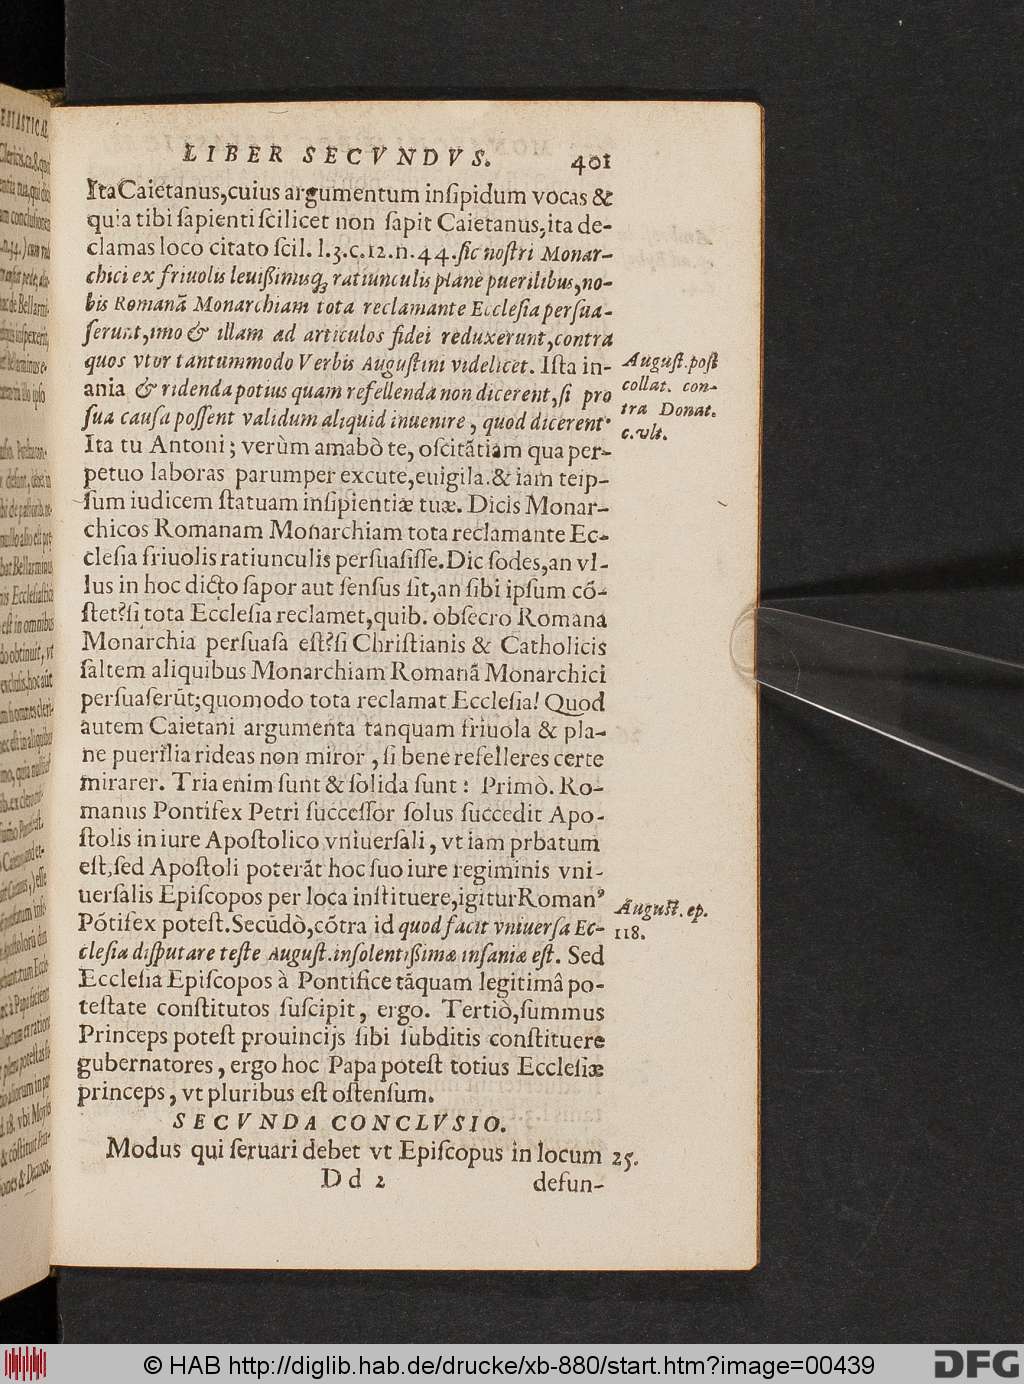 LIBER SECVNDVS. 401
Ita Caietanus, cuius argumentum inſipidum vocas &
quia tibi ſapienti ſcilicet non ſapit Caietanus, ita de-
clamas loco citato ſcil. l.3.c.12.n.44. ſic noſtri Monar-
chici ex friuolis leuißimisq; ratiunculis planè puerilibus, no-
bis Romanā Monarchiam tota reclamante Eccleſia perſua-
ſerunt, imo & illam ad articulos fidei reduxerunt, contra
quos vtor tantummodo Verbis Auguſtini videlicet. Iſta in-
ania & ridenda potius quam refellenda non dicerent, ſi pro
ſua cauſa poſſent validum aliquid inuenire, quod dicerent.
Auguſt. poſt
collat. con-
tra Donat.
c. vlt.
Ita tu Antoni; verùm amabò te, oſcitātiam qua per-
petuo laboras parumper excute, euigila. & iam teip-
ſum iudicem ſtatuam inſipientiæ tuæ. Dicis Monar-
chicos Romanam Monarchiam tota reclamante Ec-
cleſia friuolis ratiunculis perſuaſiſſe. Dic ſodes, an vl-
lus in hoc dicto ſapor aut ſenſus ſit, an ſibi ipſum cō-
ſtet? ſi tota Eccleſia reclamet, quib. obſecro Romana
Monarchia perſuaſa eſt? ſi Chriſtianis & Catholicis
ſaltem aliquibus Monarchiam Romanā Monarchici
perſuaſerūt; quomodo tota reclamat Eccleſia! Quod
autem Caietani argumenta tanquam friuola & pla-
ne puerilia rideas non miror, ſi bene refelleres certe
mirarer. Tria enim ſunt & ſolida ſunt: Primò. Ro-
manus Pontifex Petri ſucceſſor ſolus ſuccedit Apo-
ſtolis in iure Apoſtolico vniuerſali, vt iam prbatum
eſt, ſed Apoſtoli poterāt hoc ſuo iure regiminis vni-
uerſalis Epiſcopos per loca inſtituere, igitur Romanꝰ
Pōtifex poteſt. Secūdò, cōtra id quod facit vniuerſa Ec-
cleſia diſputare teſte Auguſt. inſolentißimæ inſaniæ eſt. Sed
Auguſt. ep.
118.
Eccleſia Epiſcopos à Pontifice tāquam legitimâ po-
teſtate conſtitutos ſuſcipit, ergo. Tertiò, ſummus
Princeps poteſt prouincijs ſibi ſubditis conſtituere
gubernatores, ergo hoc Papa poteſt totius Eccleſiæ
princeps, vt pluribus eſt oſtenſum.
SECVNDA CONCLVSIO.
Modus qui ſeruari debet vt Epiſcopus in locum 25.
Dd 2 defun-
© HAB http://diglib.hab.de/drucke/xb-880/start.htm?image=00439
DFG